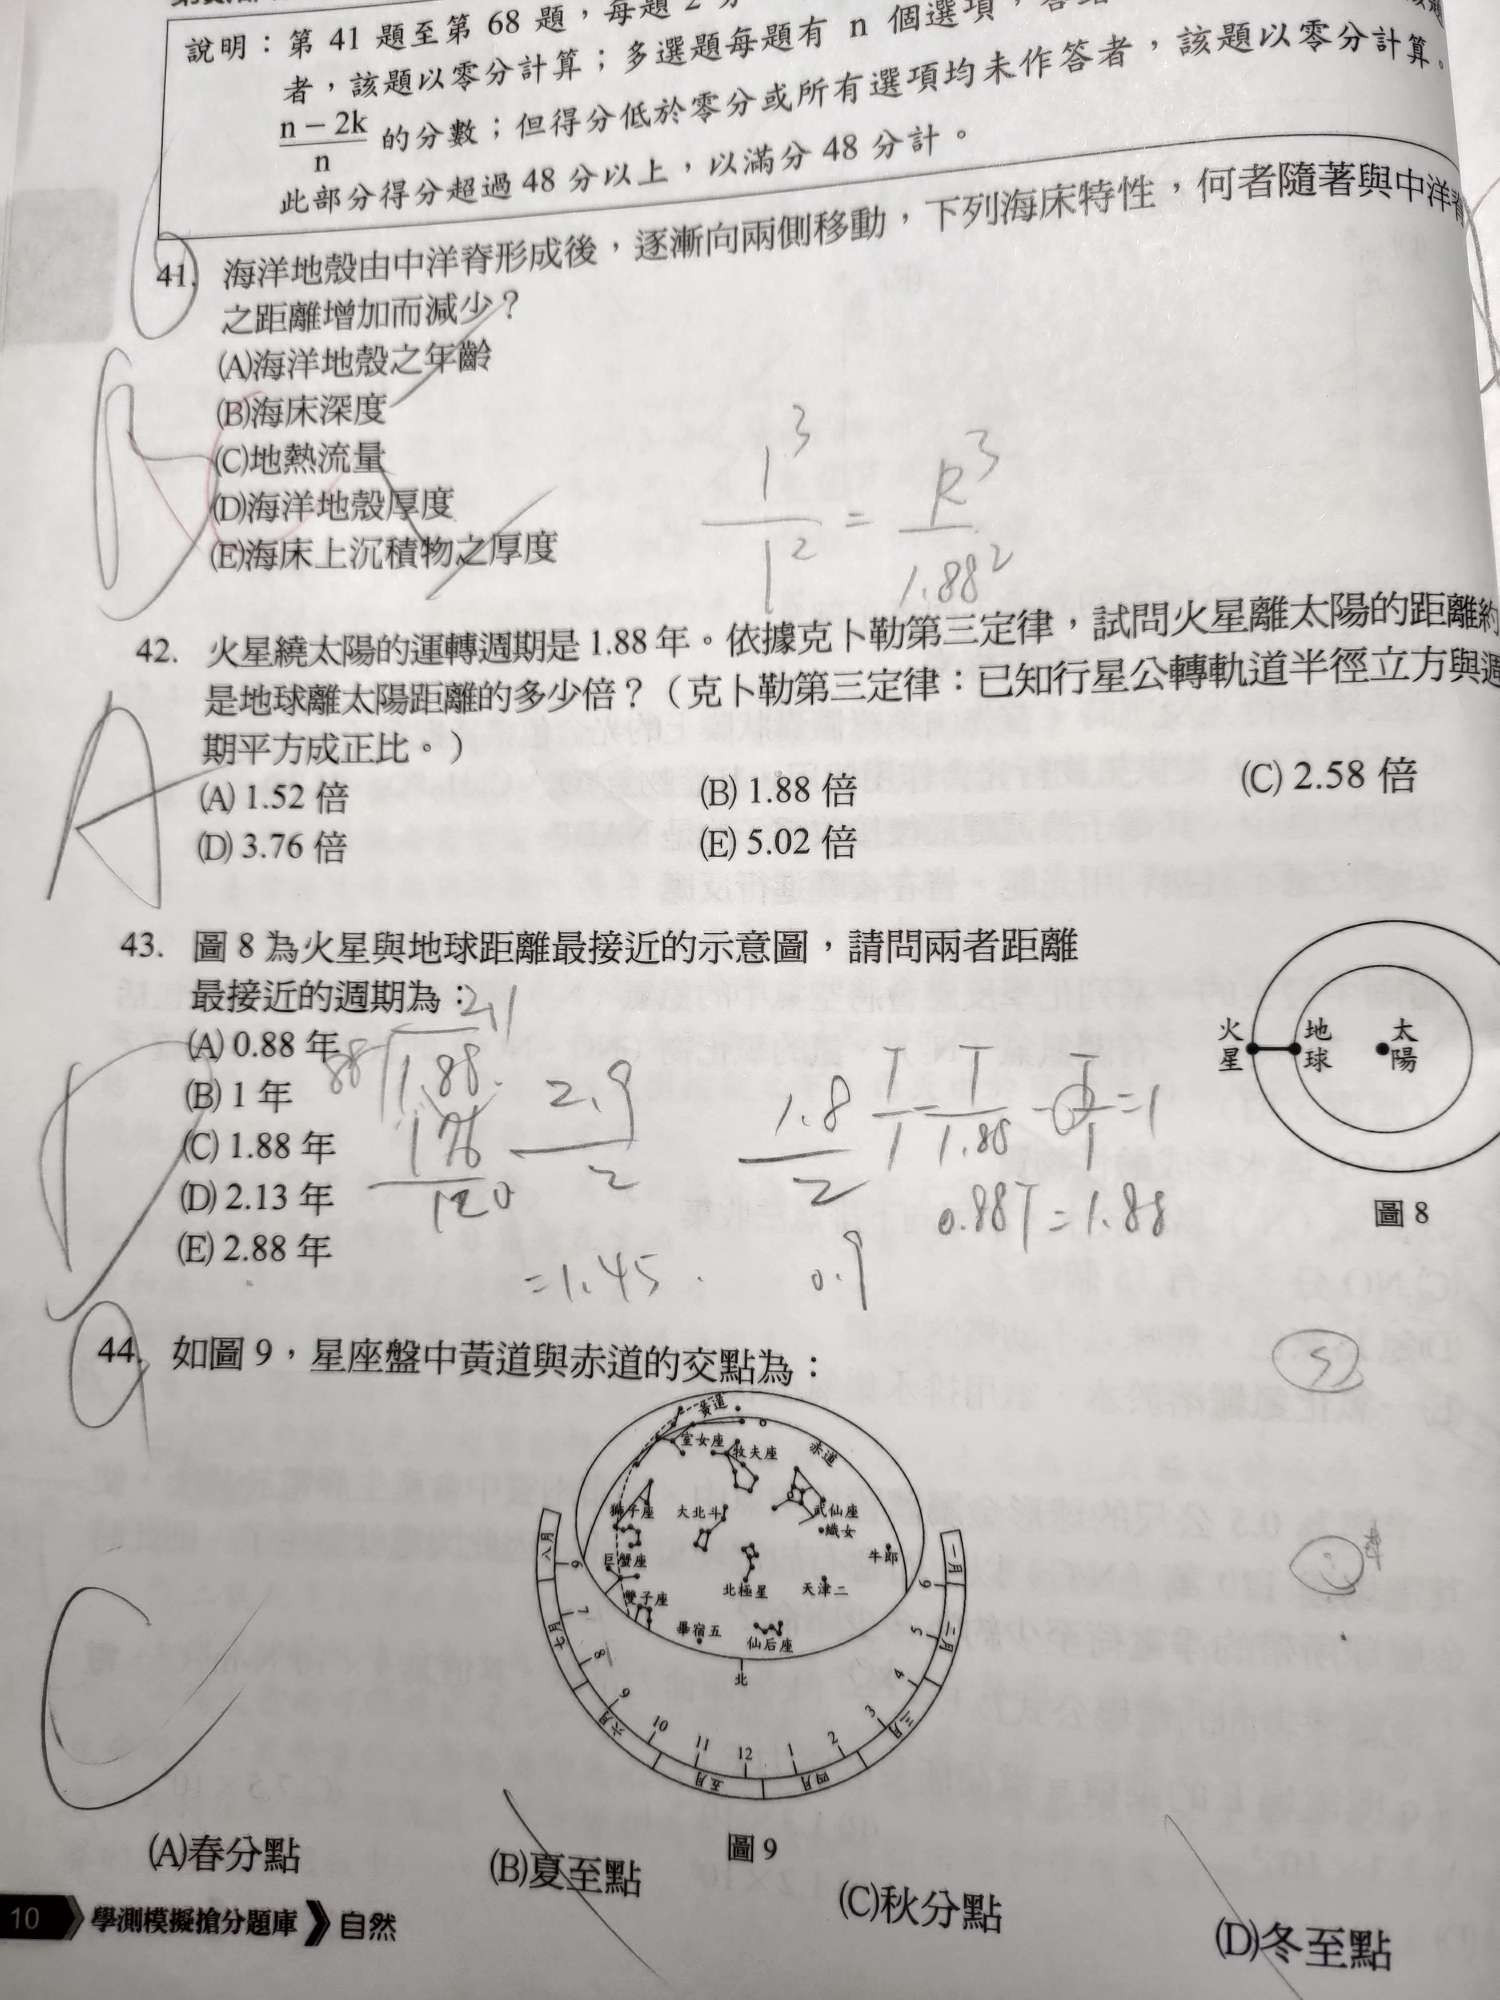 說明：第 41 題至第 68 題，每題 2 分
者，該題以零分計算；多選題每題有 n 個選項，答
n－2k
n
的分數；但得分低於零分或所有選項均未作答者，該題以零分計算。
此部分得分超過 48 分以上，以滿分 48 分計。
41. 海洋地殼由中洋脊形成後，逐漸向兩側移動，下列海床特性，何者隨著與中洋脊
之距離增加而減少？
(A)海洋地殼之年齡
(B)海床深度
(C)地熱流量
(D)海洋地殼厚度
(E)海床上沉積物之厚度
1³/1² = R³/1.88²
42. 火星繞太陽的運轉週期是 1.88 年。依據克卜勒第三定律，試問火星離太陽的距離約
是地球離太陽距離的多少倍？（克卜勒第三定律：已知行星公轉軌道半徑立方與週
期平方成正比。）
A
(A) 1.52 倍 (B) 1.88 倍 (C) 2.58 倍
(D) 3.76 倍 (E) 5.02 倍
43. 圖 8 為火星與地球距離最接近的示意圖，請問兩者距離
最接近的週期為：
(A) 0.88 年
(B) 1 年
(C) 1.88 年
(D) 2.13 年
(E) 2.88 年
火星
地球
太陽
圖 8
2.1
88
1.88
176
120
2.9
2
=1.45
1.8
2
0.9
0.88T=1.88
44. 如圖 9，星座盤中黃道與赤道的交點為：
5
黃道
室女座
牧夫座
赤道
獅子座
大北斗
武仙座
織女
巨蟹座
牛郎
雙子座
北極星
天津二
畢宿五
仙后座
北
八月
七月
六月
五月
四月
三月
二月
一月
6
7
8
9
10
11
12
1
2
3
4
5
6
圖 9
C
(A)春分點
(B)夏至點
(C)秋分點
(D)冬至點
10 學測模擬搶分題庫 自然